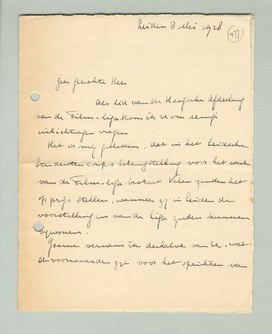 Leiden 8 Mei 1928
Zeer geachte Heer
Als lid van de Haagsche Afdeeling
van de Filmliga kom ik U om eenige
inlichtingen vragen.
Het is mij gebleken, dat in het Leidsche
Studentencorps belangstelling voor het werk
van de Filmliga bestaat. Velen zouden het
op prijs stellen, wanneer zij in Leiden de
voorstellingen van de liga zouden kunnen
bijwonen.
Gaarne vernam ik derhalve van U, wat
de voorwaarden zijn voor het oprichten van